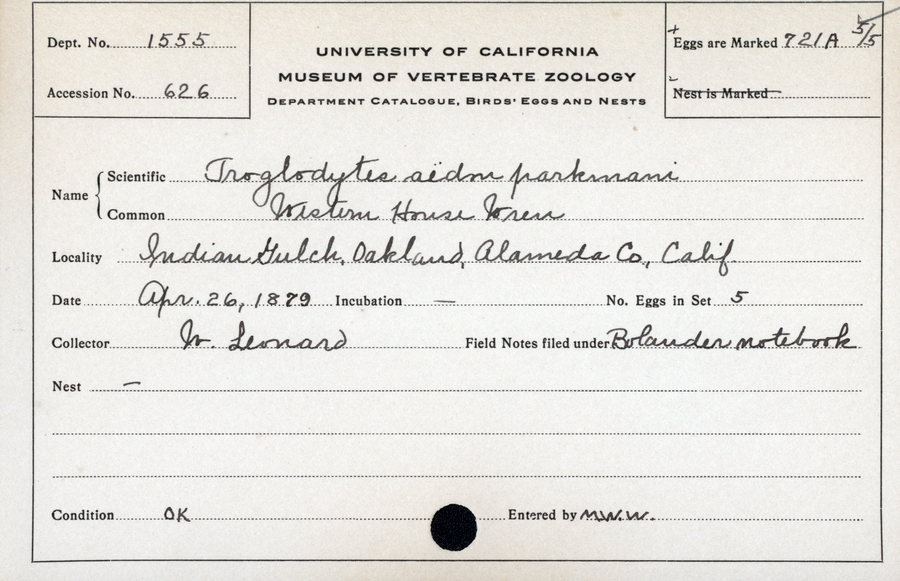 Dept. No. 1555
Accession No. 626
UNIVERSITY OF CALIFORNIA
MUSEUM OF VERTEBRATE ZOOLOGY
DEPARTMENT CATALOGUE, BIRDS' EGGS AND NESTS
+
Eggs are Marked 721A 5/5
-
Nest is Marked
Name
Scientific Troglodytes aëdon parkmani
Common Western House Wren
Locality Indian Gulch, Oakland, Alameda Co., Calif.
Date Apr. 26, 1879 Incubation — No. Eggs in Set 5
Collector W. Leonard Field Notes filed under Bolander notebook
Nest —
Condition OK Entered by M.W.W.